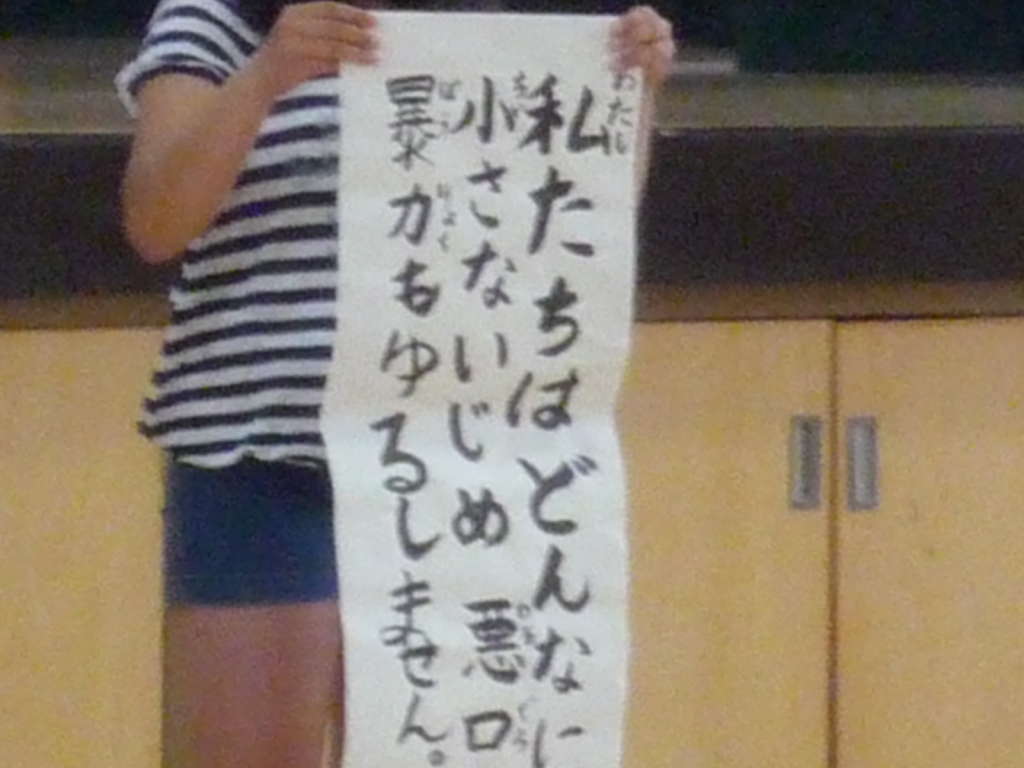 私たちはどんなに
小さないじめ 悪口
暴力もゆるしません。